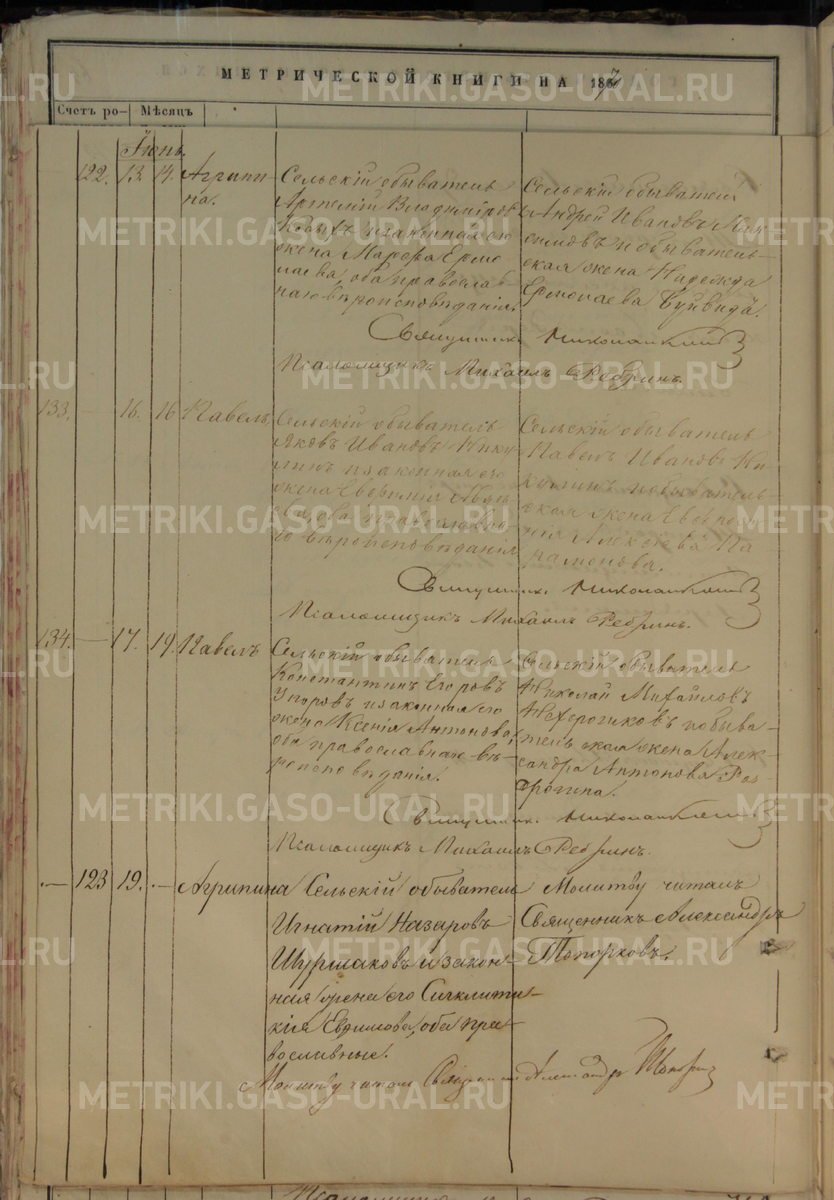 МЕТРИЧЕСКОЙ КНИГИ НА 1867
Счетъ ро- Мѣсяцъ
Іюнь.
122. 13. 14. Агрипи-
на.
Сельскій обыватель
Владиміровъ
и законная его
жена Марѳа Ермо-
лаева, оба православ-
наго вѣроисповѣданія.
Сельскій обыватель
Андрей Ивановъ Мак-
симовъ и обыватель-
ская жена Надежда
Ермолаева
Священникъ Николай
Псаломщикъ Михаилъ Ребринъ.
133. — 16. 16 Павелъ.
Сельскій обыватель
Яковъ Ивановъ Нику-
линъ и законная его
жена
православна-
го вѣроисповѣданія
Сельскій обыватель
Павелъ Ивановъ Ни-
кулинъ и обыватель-
ская жена
Па-
рамонова.
Священникъ Николай
Псаломщикъ Михаилъ Ребринъ.
134. — 17. 19. Павелъ
Сельскій обыватель
Константинъ Егоровъ
Упоровъ и законная его
жена Ксенія Антонова,
оба православнаго вѣ-
роисповѣданія.
Сельскій обыватель
Николай Михайловъ
и обыва-
тельская жена Алек-
сандра Антонова
Священникъ Николай
Псаломщикъ Михаилъ Ребринъ.
— 123 19. — Агрипина
Сельскій обыватель
Игнатій Назаровъ
Шуршаковъ и закон-
ная жена его Синклити-
кія Евѳимова, оба пра-
вославные.
Молитву читалъ
Священникъ Александръ
Топорковъ.
Молитву читалъ Священникъ Александръ Топорковъ
METRIKI.GASO-URAL.RU